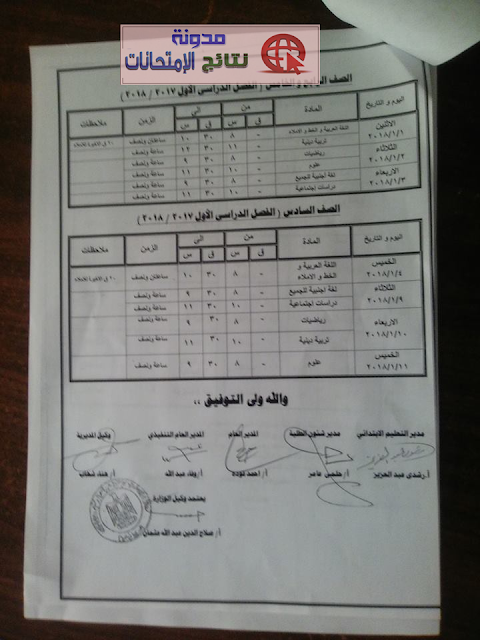 مدونة
نتائج الإمتحانات
الصف الرابع والخامس ( الفصل الدراسى الأول ٢٠١٧ / ٢٠١٨ )
اليوم و التاريخ | المادة | من | الى | الزمن | ملاحظات
ق | س | ق | س
الاثنين ٢٠١٨/١/١ | اللغة العربية و الخط و الاملاء | - | ٨ | ٣٠ | ١٠ | ساعتان ونصف
تربية دينية | - | ١١ | ٣٠ | ١٢ | ساعة ونصف
الثلاثاء ٢٠١٨/١/٢ | رياضيات | - | ٨ | ٣٠ | ٩ | ساعة ونصف
علوم | - | ١٠ | ٣٠ | ١١ | ساعة ونصف
الاربعاء ٢٠١٨/١/٣ | لغة اجنبية للجميع | - | ٨ | ٣٠ | ٩ | ساعة ونصف
دراسات إجتماعية | - | ١٠ | ٣٠ | ١١ | ساعة ونصف
الصف السادس ( الفصل الدراسى الأول ٢٠١٧ / ٢٠١٨ )
اليوم و التاريخ | المادة | من | الى | الزمن | ملاحظات
ق | س | ق | س
الخميس ٢٠١٨/١/٤ | اللغة العربية و الخط و الاملاء | - | ٨ | ٣٠ | ١٠ | ساعتان ونصف
الثلاثاء ٢٠١٨/١/٩ | لغة اجنبية للجميع | - | ٨ | ٣٠ | ٩ | ساعة ونصف
دراسات اجتماعية | - | ١٠ | ٣٠ | ١١ | ساعة ونصف
الاربعاء ٢٠١٨/١/١٠ | رياضيات | - | ٨ | ٣٠ | ٩ | ساعة ونصف
تربية دينية | - | ١٠ | ٣٠ | ١١ | ساعة ونصف
الخميس ٢٠١٨/١/١١ | علوم | - | ٨ | ٣٠ | ٩ | ساعة ونصف
والله ولى التوفيق ،،
مدير التعليم الابتدائي | مدير شئون الطلبة | المدير العام | المدير العام التنفيذي | وكيل المديرية
أ/ رشدى عبد العزيز | أ/ عامر | أ/ احمد | أ/ وفاء عبد الله | أ/ هناء
يعتمد وكيل الوزارة
أ/ صلاح الدين عبد الله عثمان